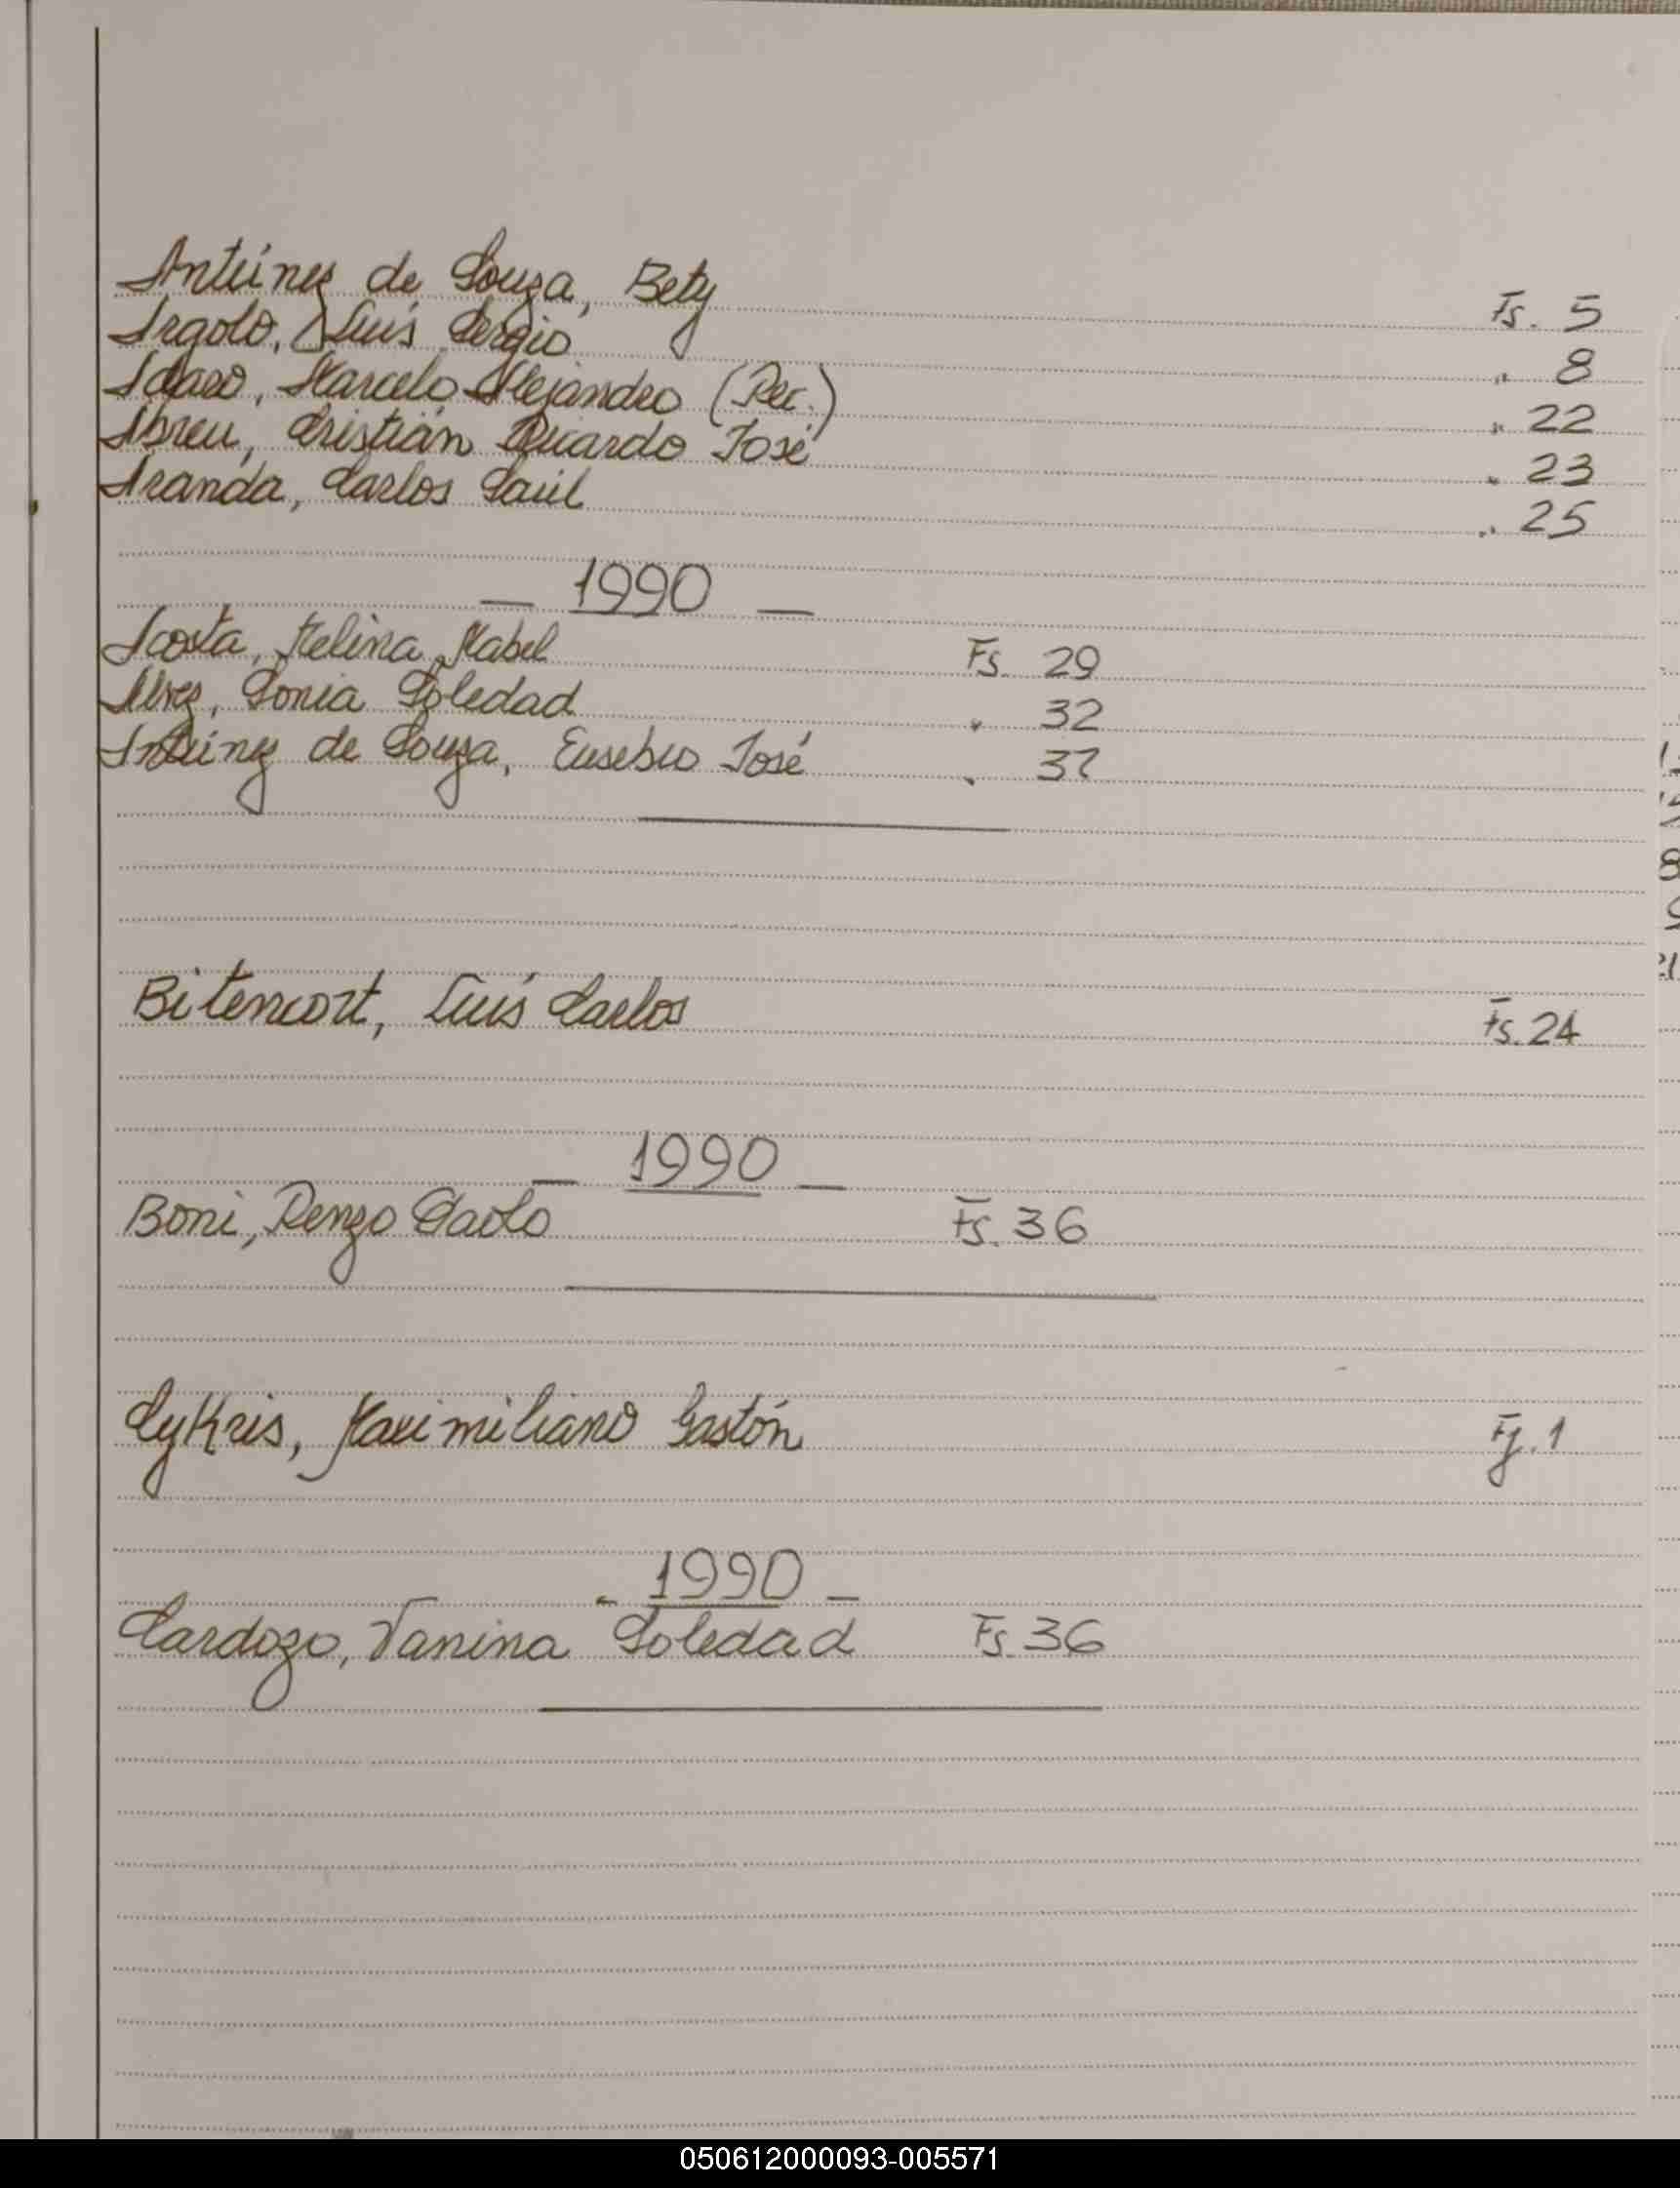 Antúnez de Souza, Bety Fs. 5
Argolo, Luís Sergio " 8
Marcelo Alejandro (Rec.) " 22
Abreu, Cristián Ricardo José " 23
Aranda, Carlos Saúl " 25
— 1990 —
Acosta, Melina Mabel Fs. 29
Alvez, Sonia Soledad " 32
Antúnez de Souza, Eusebio José " 37
Bitencort, Luís Carlos Fs. 24
— 1990 —
Boni, Renzo Paolo Fs. 36
Cykris, Maximiliano Gastón Fj. 1
- 1990 -
Cardozo, Vanina Soledad Fs 36
050612000093-005571